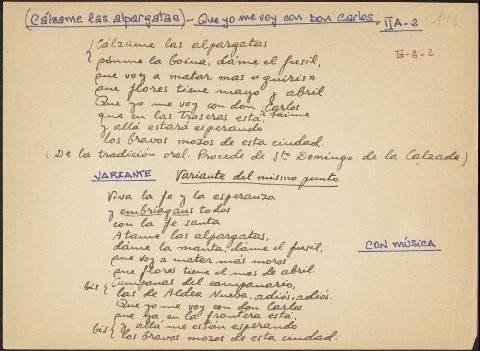 (Cálzame las alpargatas) - Que yo me voy con Don Carlos. IIA-2
141
II-A-2
Cálzame las alpargatas
pónme la boina, dáme el fusil,
que voy a matar mas "guiris"
que flores tiene mayo y abril
Que yo me voy con don Carlos
que en las Traseras está, Jaime
y allá estará esperando
los bravos mozos de esta ciudad.
(De la tradición oral. Procede de Sto Domingo de la Calzada)
VARIANTE Variante del mismo punto
Viva la fe y la esperanza
y embriagaus todos
con la fe santa
Atame las alpargatas,
dáme la manta, dáme el fusil,
que voy a matar más moros
que flores tiene el mes de abril.
CON MÚSICA
bis Campanas del campanario,
las de Aldea Nueba, adiós, adiós.
Que yo me voy con don Carlos
que ya en la frontera está,
bis y allá me están esperando
los bravos mozos de esta ciudad.